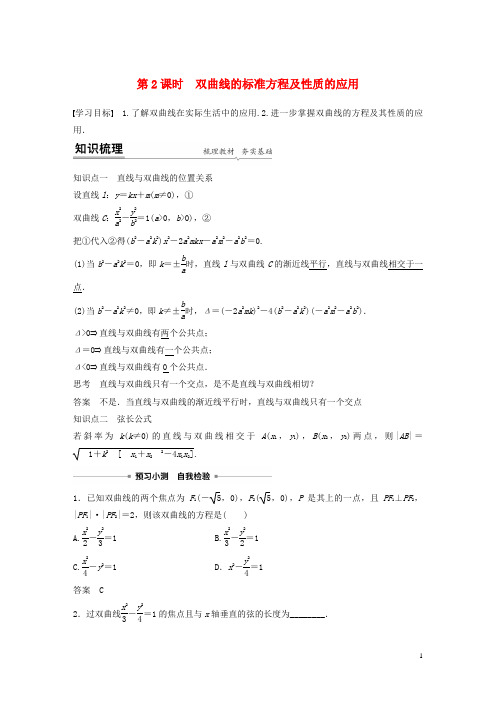 第2课时 双曲线的标准方程及性质的应用
学习目标 1.了解双曲线在实际生活中的应用.2.进一步掌握双曲线的方程及其性质的应
用.
知识梳理 梳理教材 夯实基础
知识点一 直线与双曲线的位置关系
设直线l：y＝kx＋m(m≠0)，①
双曲线C：x²/a²－y²/b²＝1(a>0，b>0)，②
把①代入②得(b²－a²k²)x²－2a²mkx－a²m²－a²b²＝0.
(1)当b²－a²k²＝0，即k＝±b/a时，直线l与双曲线C的渐近线平行，直线与双曲线相交于一
点.
(2)当b²－a²k²≠0，即k≠±b/a时，Δ＝(－2a²mk)²－4(b²－a²k²)(－a²m²－a²b²).
Δ>0⇒直线与双曲线有两个公共点；
Δ＝0⇒直线与双曲线有一个公共点；
Δ<0⇒直线与双曲线有0个公共点.
思考 直线与双曲线只有一个交点，是不是直线与双曲线相切？
答案 不是.当直线与双曲线的渐近线平行时，直线与双曲线只有一个交点
知识点二 弦长公式
若斜率为k(k≠0)的直线与双曲线相交于A(x₁，y₁)，B(x₂，y₂)两点，则|AB|＝
√1＋k² [ x₁＋x₂ ²－4x₁x₂].
预习小测 自我检验
1．已知双曲线的两个焦点为F₁(－√5，0)，F₂(√5，0)，P是其上的一点，且PF₁⊥PF₂，
|PF₁|·|PF₂|＝2，则该双曲线的方程是( )
A.x²/2－y²/3＝1 B.x²/3－y²/2＝1
C.x²/4－y²＝1 D．x²－y²/4＝1
答案 C
2．过双曲线x²/3－y²/4＝1的焦点且与x轴垂直的弦的长度为________.
1